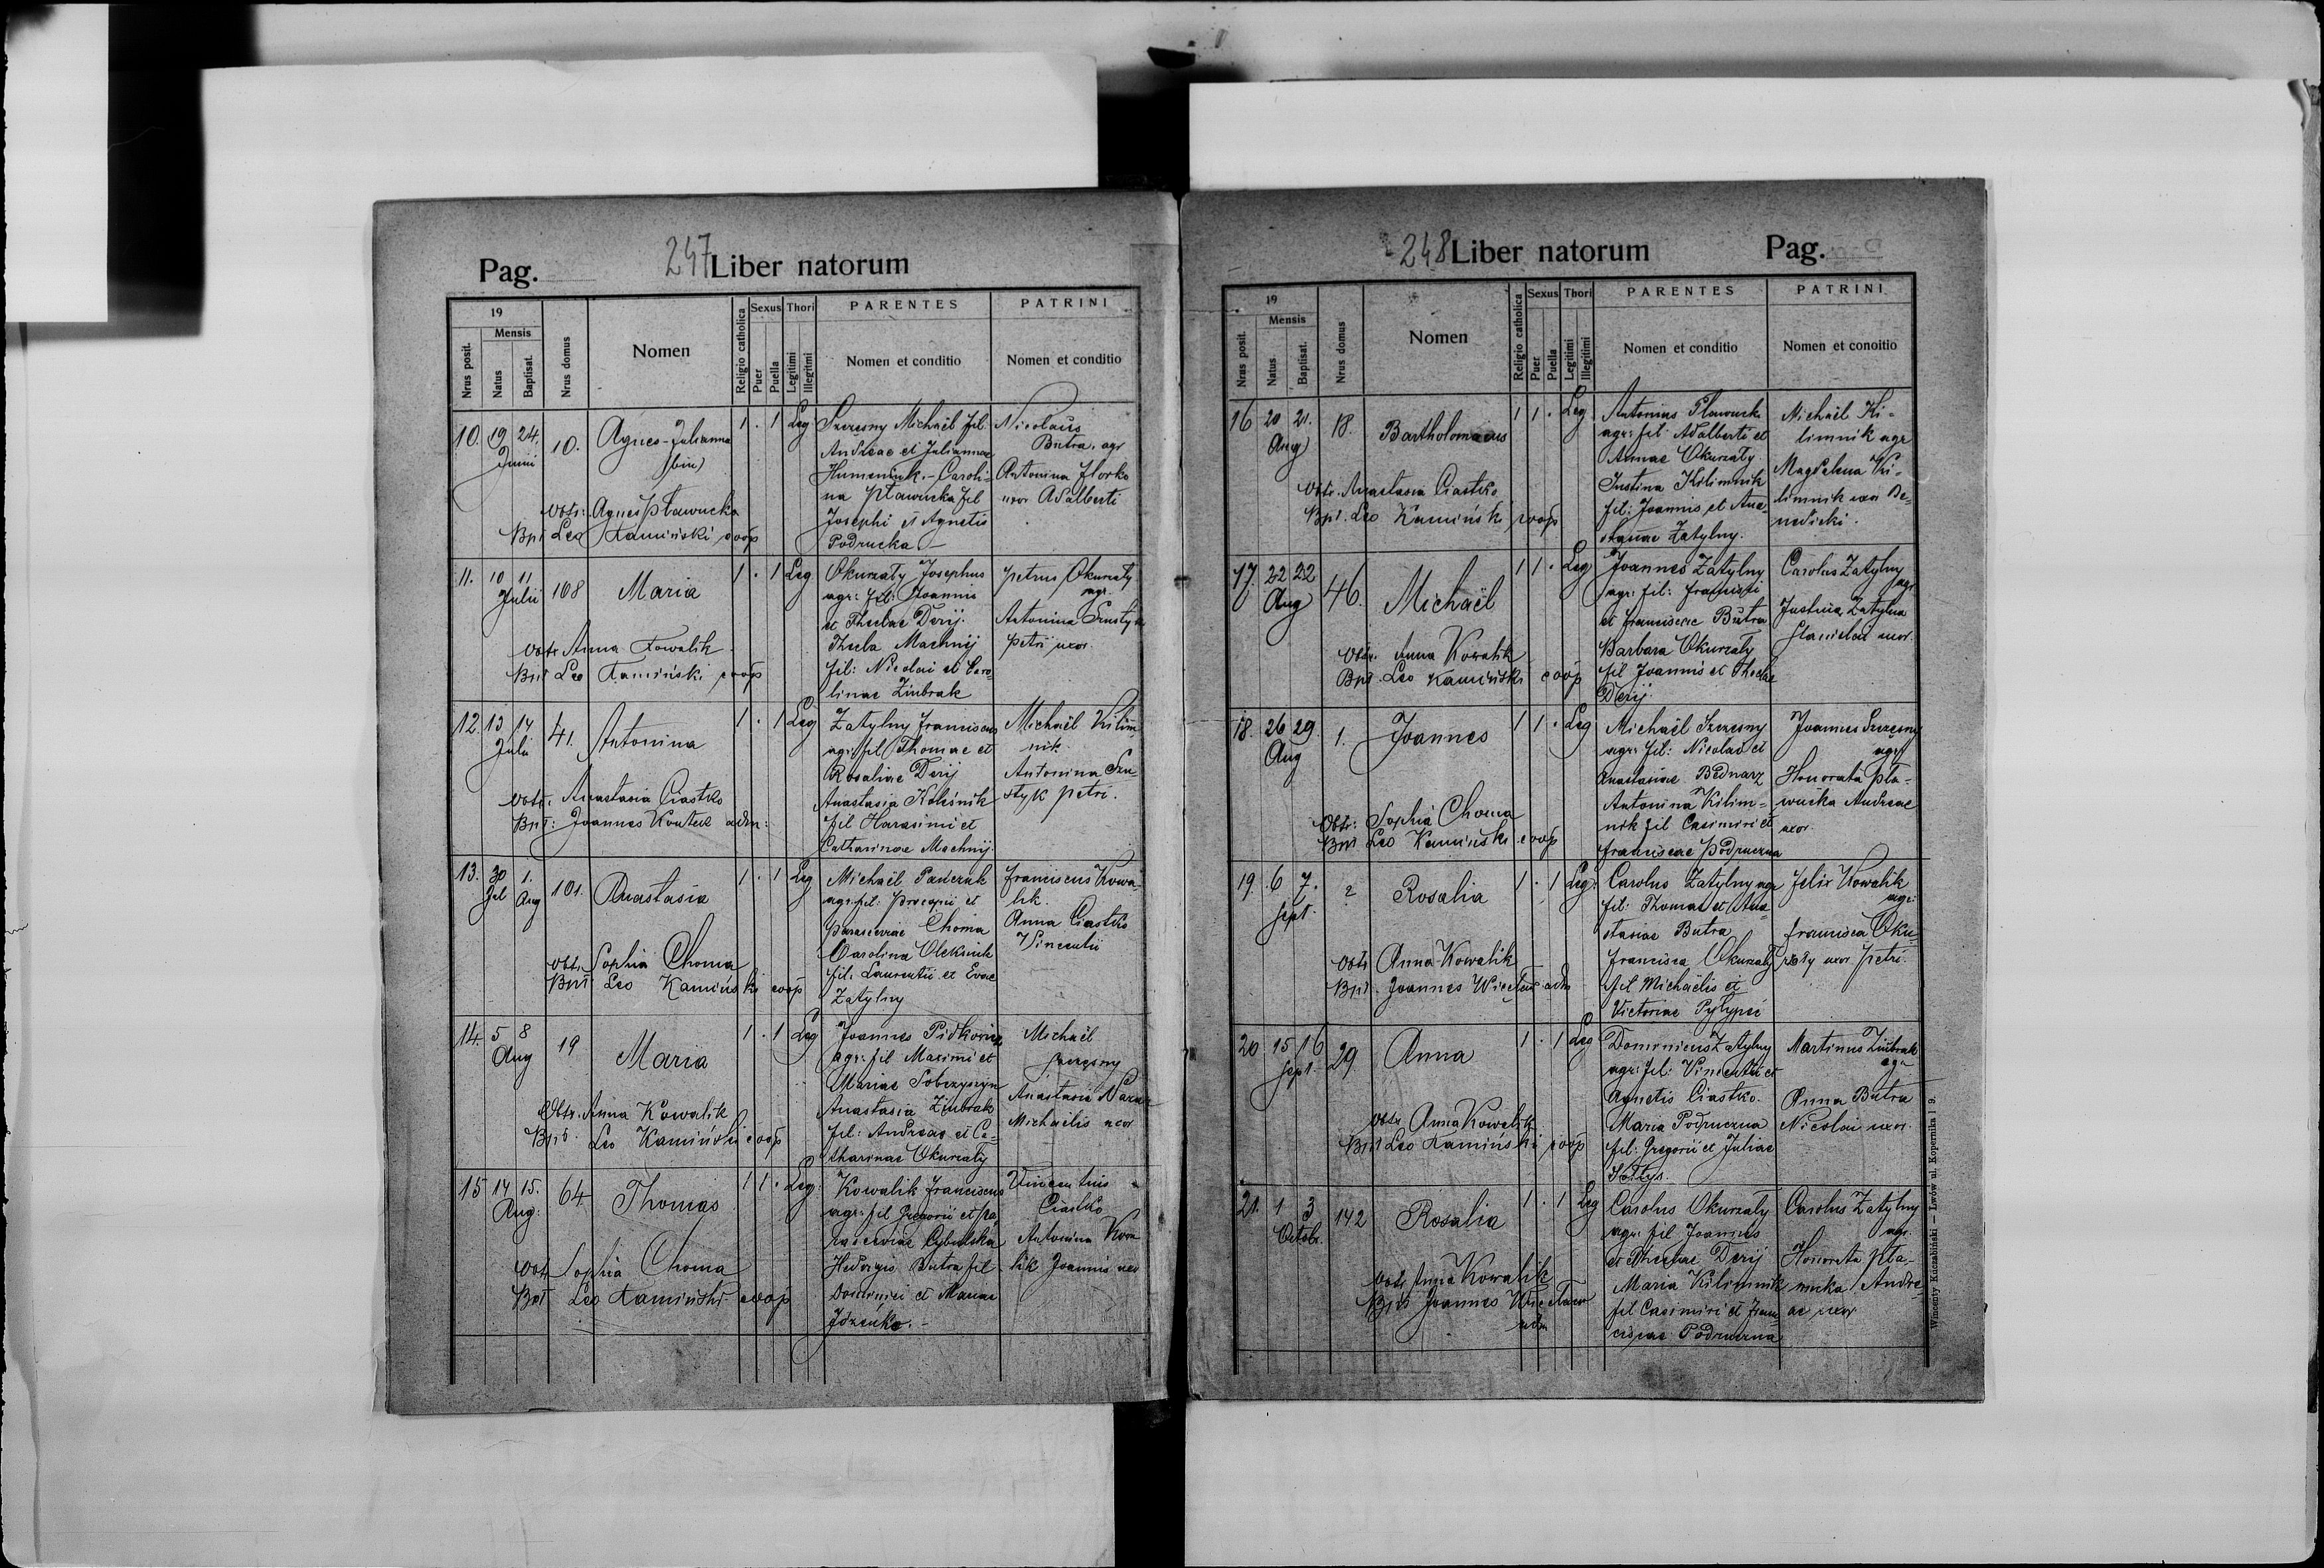 Pag.
247 Liber natorum
19
Mensis
Nrus posit.
Natus
Baptisat.
Nrus domus
Nomen
Religio catholica
Sexus
Puer
Puella
Thori
Legitimi
Illegitimi
PARENTES
Nomen et conditio
PATRINI
Nomen et conditio
10. 19 24. Junii 10. Agnes-Julianna
(bin)
1 . 1 Leg
Szczesny Michaël fil.
Andreae et Juliannae
Humeniuk. - Caroli-
na Pławucka fil
Josephi et Agnetis
Podrucka -
Nicolaus
Butra, agr
Antonina
uxor Adalberti
Obstr: Agnes Pławucka
Bpt Leo Kamiński coop
11. 10 11 Julii 108 Maria
1 . 1 Leg
Okurzaty Josephus
agr: fil: Joannis
et Theclae Derij.
Thecla Machnij
fil: Nicolai et Caro-
linae Ziubrak
Petrus Okurzaty
agr.
Antonina
Petri uxor.
Obstr Anna Kowalik
Bpt Leo Kamiński coop
12. 13 14 Julii 41. Antonina
1 . 1 Leg
Zatylny Franciscus
agr: fil Thomae et
Rosaliae Derij
Anastasia Koleśnik
fil Harasimi et
Catharinae Machnij.
Michaël Kilim-
nik.
Antonina Szu-
styk Petri.
Obstr. Anastasia Ciastko
Bpt: Joannes adm:
13. 30 Jul 1. Aug 101. Anastasia
1 . 1 Leg
Michaël Panczuk
agr: fil: Procopii et
Parasceviae Choma
Carolina Oleksiuk
fil: Laurentii et Evae
Zatylny
Franciscus Kowa-
lik.
Anna Ciastko
Vincentii
Obstr Sophia Choma
Bpt Leo Kamiński coop
14. 5 8 Aug 19 Maria
1 . 1 Leg
Joannes Pidkowicz
agr: fil Maximi et
Mariae
Anastasia Ziubrak
fil: Andreae et Ca-
tharinae Okurzaty
Michaël
Szczęsny
Anastasia
Michaelis uxor
Obstr. Anna Kowalik
Bpt. Leo Kamiński coop
15 14 15. Aug: 64 Thomas
1 1 . Leg:
Kowalik Franciscus
agr: fil Gregorii et Pa-
rasceviae Cybulska
Hedvigis Butra fil
Dominici et Mariae
Vincentius
Ciastko
Antonina Kowa-
lik Joannis uxor
Obstr Sophia Choma
Bpt Leo Kamiński coop
248 Liber natorum
Pag.
19
Mensis
Nrus posit.
Natus
Baptisat.
Nrus domus
Nomen
Religio catholica
Sexus
Puer
Puella
Thori
Legitimi
Illegitimi
PARENTES
Nomen et conditio
PATRINI
Nomen et conoitio
16 20 21. Aug 18. Bartholomaeus
1 1 . Leg
Antonius Pławucki
agr: fil: Adalberti et
Annae Okurzaty.
Justina Kilimnik
fil: Joannis et Ana-
stasiae Zatylny.
Michaël Ki-
limnik agr
Magdalena Ki-
limnik uxor Be-
nedicti.
Obstr. Anastasia Ciastko
Bpt. Leo Kamiński coop
17. 22 22 Aug 46. Michaël
1 1 . Leg
Joannes Zatylny
agr: fil: Francisci
et Franciscae Butra
Barbara Okurzaty
fil Joannis et Theclae
Derij.
Carolus Zatylny
agr
Justina Zatylna
Stanislai uxor.
Obstr. Anna Kowalik
Bpt. Leo Kamiński coop
18. 26 29. Aug 1. Joannes
1 1 . Leg
Michaël Szczesny
agr: fil: Nicolao et
Anastasiae Bednarz
Antonina Kilim-
nik fil Casimiri et
Franciscae Podruczna
Joannes Szczęsny
agr
Honorata Pła-
wucka Andreae
uxor.
Obstr: Sophia Choma
Bpt Leo Kamiński coop
19. 6 7. Sept. 2 Rosalia
1 . 1 Leg:
Carolus Zatylny agr
fil: Thomae et Ana-
stasiae Butra
Francisca Okurzaty
fil Michaëlis et
Victoriae
Felix Kowalik
agr:
Francisca Oku-
rzaty uxor Petri.
Obstr Anna Kowalik
Bpt. Joannes adm
20 15 16 Sept. 29 Anna
1 . 1 Leg
Dominicus Zatylny
agr: fil: Vincentii et
Agnetis Ciastko.
Maria Podruczna
fil: Gregorii et Juliae
Sołtys.
Martinus Ziubrak
agr
Anna Butra
Nicolai uxor.
Obstr Anna Kowalik
Bpt Leo Kamiński coop
21. 1 3 Octobr. 142 Rosalia
1 . 1 Leg
Carolus Okurzaty
agr: fil Joannis
et Theclae Derij
Maria Kilimnik
fil Casimiri et Fran-
ciscae Podruczna
Carolus Zatylny
agr.
Honorata Pła-
wucka Andre-
ae uxor
Obstr Anna Kowalik
Bpt Joannes
adm
Wincenty Kuczabiński — Lwów ul. Kopernika l 9.